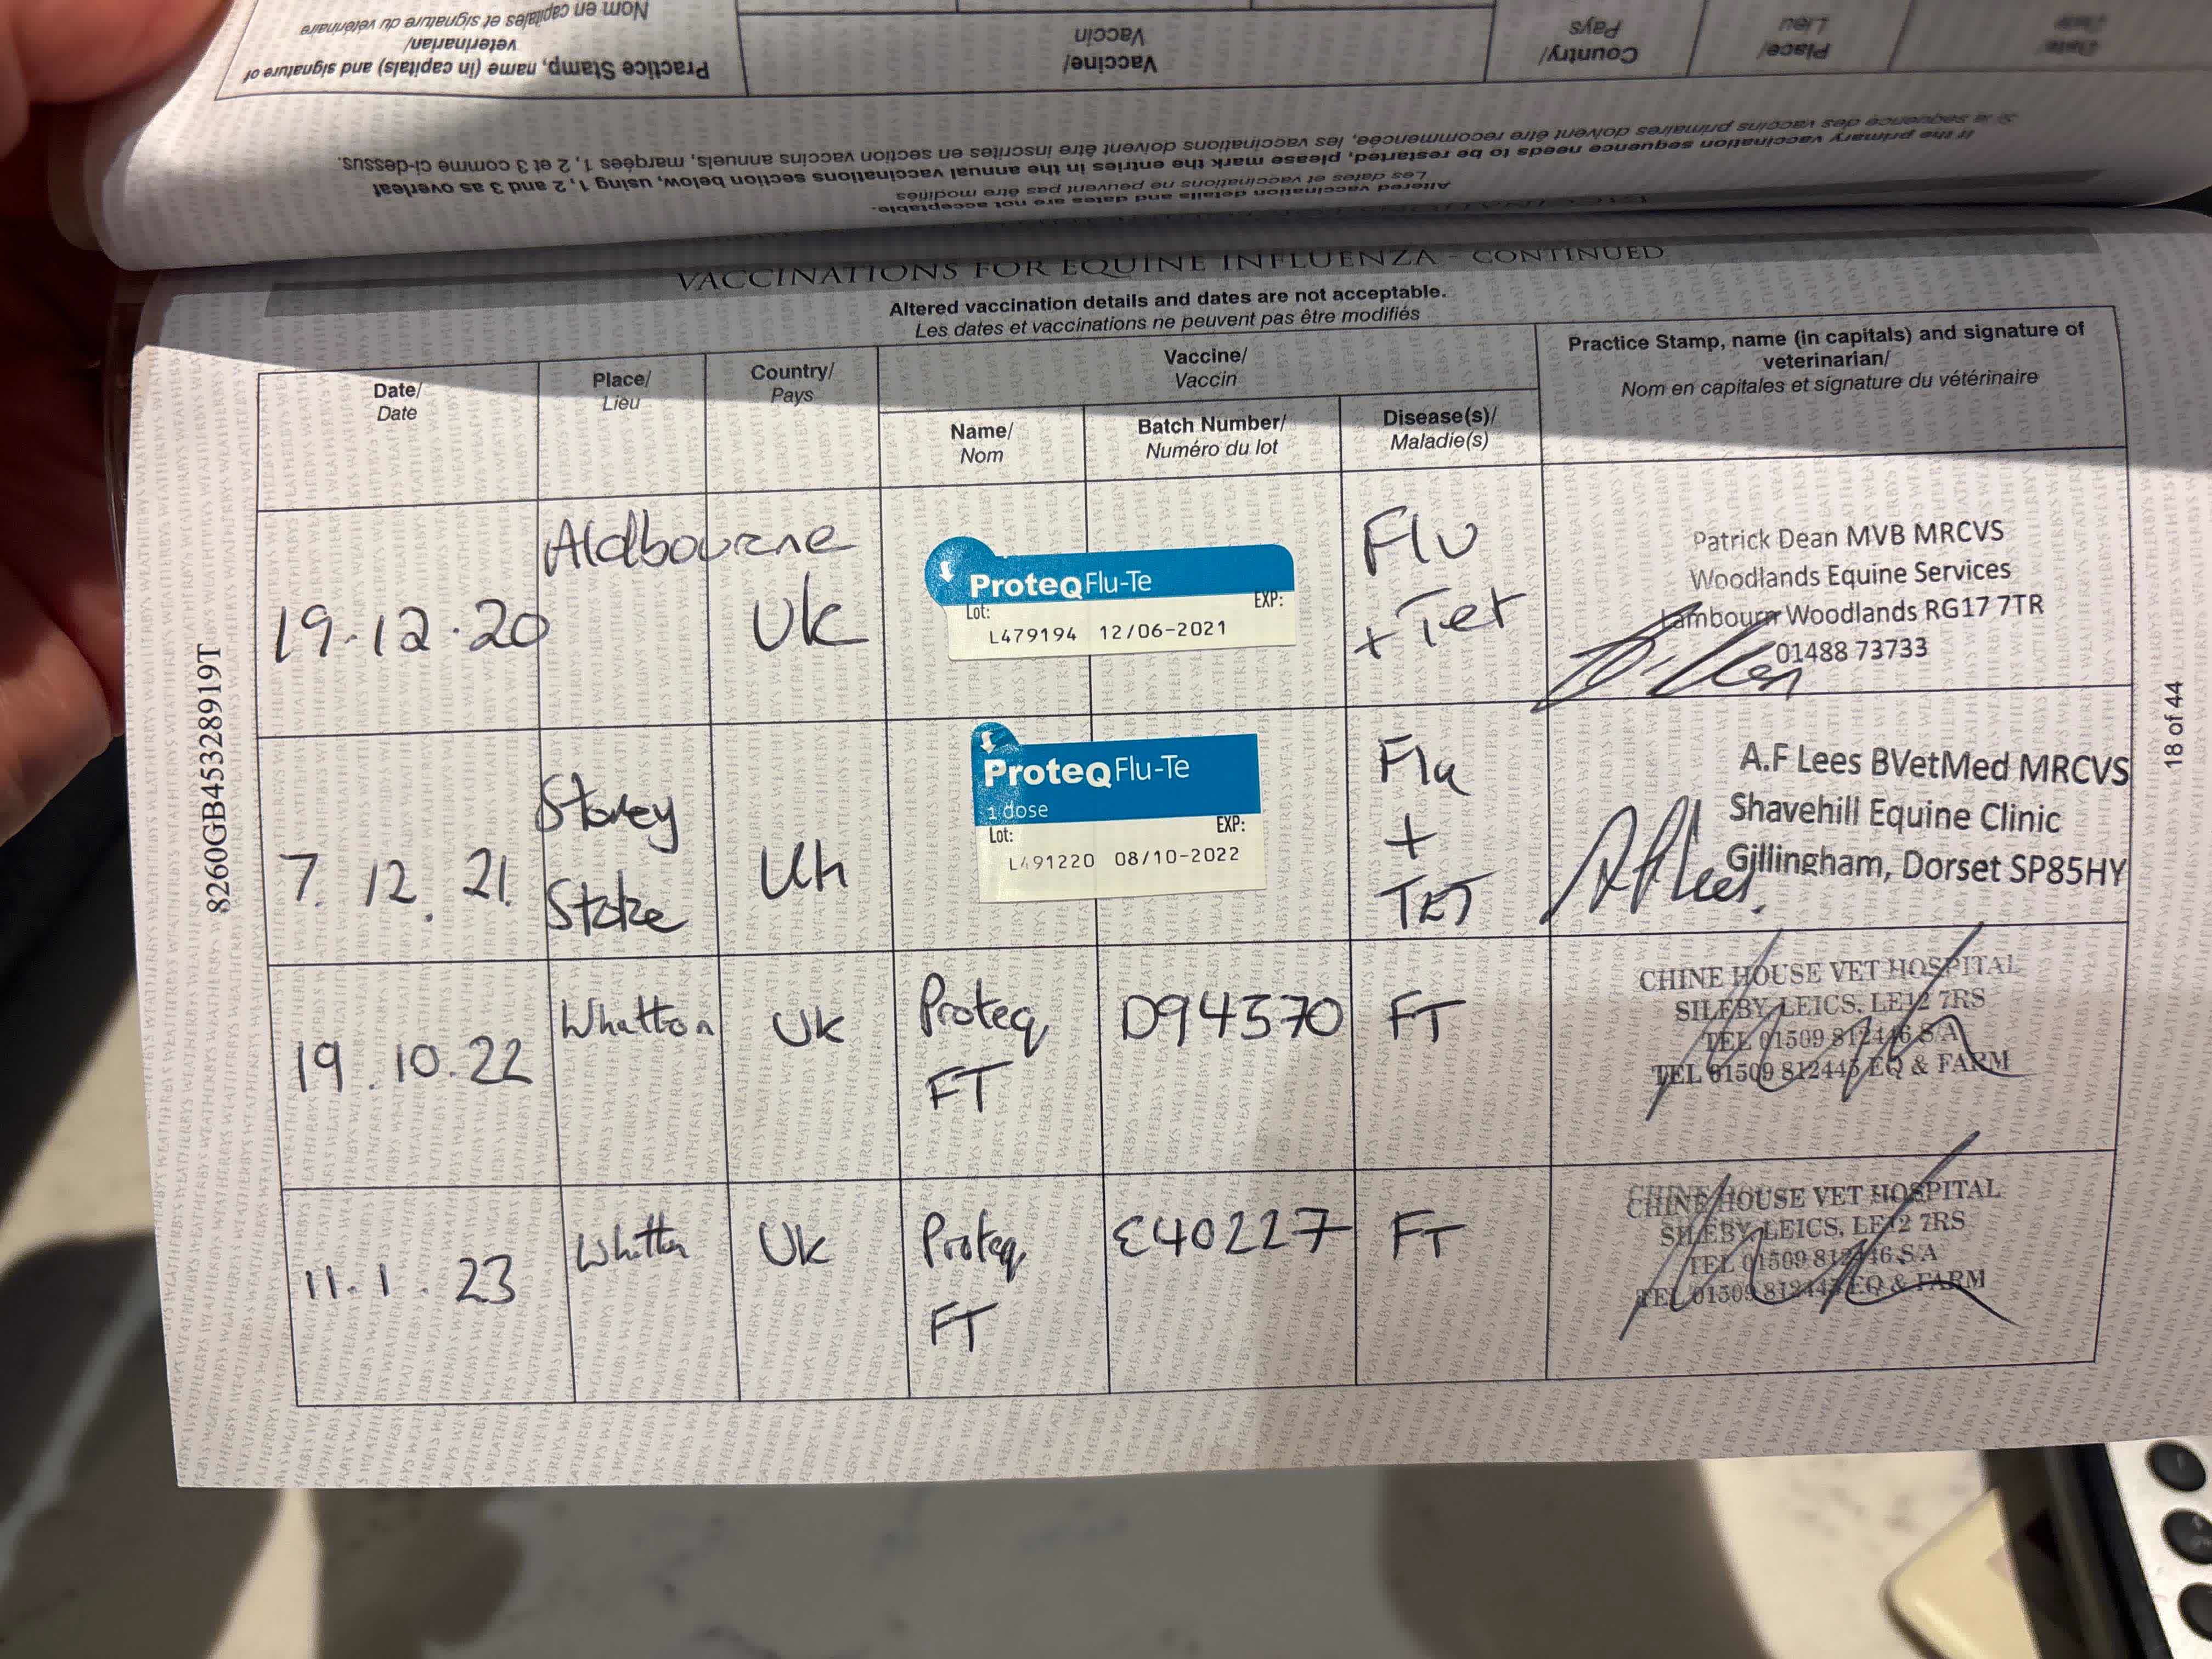 Date/
Date
Place/
Lieu
Country/
Pays
Vaccine/
Vaccin
Practice Stamp, name (in capitals) and signature of
veterinarian/
Nom en capitales et signature du vétérinaire
If the primary vaccination sequence needs to be restarted, please mark the entries in the annual vaccinations section below, using 1, 2 and 3 as overleaf
Si la séquence des vaccins primaires doivent être recommencée, les vaccinations doivent être inscrites en section vaccins annuels, marquées 1, 2 et 3 comme ci-dessus.
Altered vaccination details and dates are not acceptable.
Les dates et vaccinations ne peuvent pas être modifiés
VACCINATIONS FOR EQUINE INFLUENZA - CONTINUED
Altered vaccination details and dates are not acceptable.
Les dates et vaccinations ne peuvent pas être modifiés
Date/
Date
Place/
Lieu
Country/
Pays
Vaccine/
Vaccin
Name/
Nom
Batch Number/
Numéro du lot
Disease(s)/
Maladie(s)
Practice Stamp, name (in capitals) and signature of
veterinarian/
Nom en capitales et signature du vétérinaire
19.12.20
Aldbourne
UK
ProteqFlu-Te
Lot: EXP:
L479194 12/06-2021
Flu
+ Tet
Patrick Dean MVB MRCVS
Woodlands Equine Services
Lambourn Woodlands RG17 7TR
01488 73733
7. 12. 21.
Stoney
Stoke
Uk
ProteqFlu-Te
1 dose
Lot: EXP:
L491220 08/10-2022
Flu
+
TET
A.F Lees BVetMed MRCVS
Shavehill Equine Clinic
Gillingham, Dorset SP85HY
AFLees.
19.10.22
Whatton
UK
Proteq
FT
D94570
FT
CHINE HOUSE VET HOSPITAL
SILEBY, LEICS, LE12 7RS
TEL 01509 812446 S/A
TEL 01509 812445 EQ & FARM
11.1.23
Whatton
UK
Proteq
FT
E40227
FT
CHINE HOUSE VET HOSPITAL
SILEBY, LEICS, LE12 7RS
TEL 01509 812446 S/A
TEL 01509 812445 EQ & FARM
8260GB45328919T
18 of 44